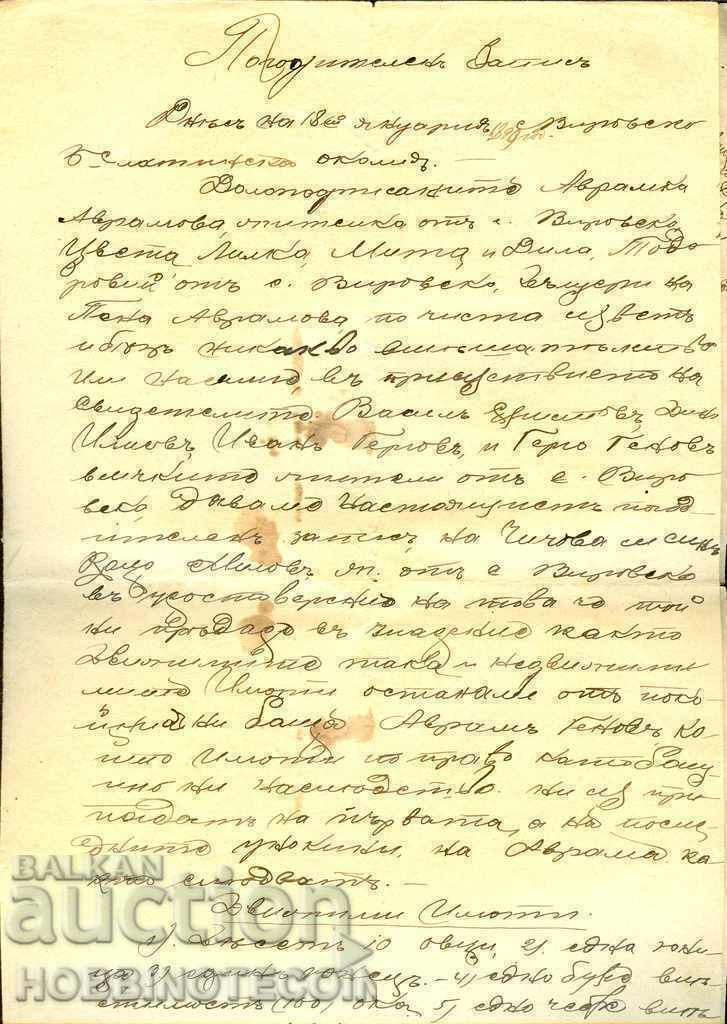 Погодителенъ Записъ
Днесъ на 18ий януарий 1899 год. с. Вировско
Б-Слатинска околия. —
Долоподписаните Аврамка
Аврамова, жителка отъ с. Вировско,
Цвета, Лилка, Мита и Дила, Тодо
рови отъ с. Вировско, дъщери на
Пена Аврамова, по чиста съвесть
и безъ никакво
или насилие, въ присъствието на
свидетелите: Василъ
Илиовъ, Иванъ Геровъ, и Геро Геновъ
всичките жители отъ с. Виро
вско, даваме настоящиятъ погод
ителенъ записъ, на Чичова ни синъ
Яковъ жи. отъ с. Вировско
въ удостоверение на това че той
ни предаде въ владение както
движимите така и недвижими
имоти останали отъ поко
йния ни баща Аврамъ Геновъ, ко
ито имоти по право като бащ
ино ни наследство. ни се при
падатъ на първата, а на после
дните унокини, на Аврама ка
кто следватъ. —
Движими Имоти.
1/. Десеть 10 овци, 2/. една юни
ца 3/ единъ юнецъ. — 4/ едно буре вм
стимость (100) ока. 5/ едно
BALKAN
auction
HOBBINOTECOIN